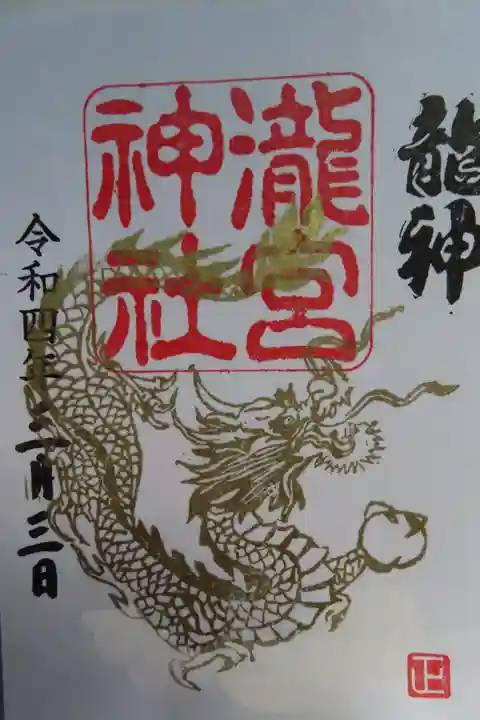 龍神
瀧宮
神社
令和四年二月三日
正